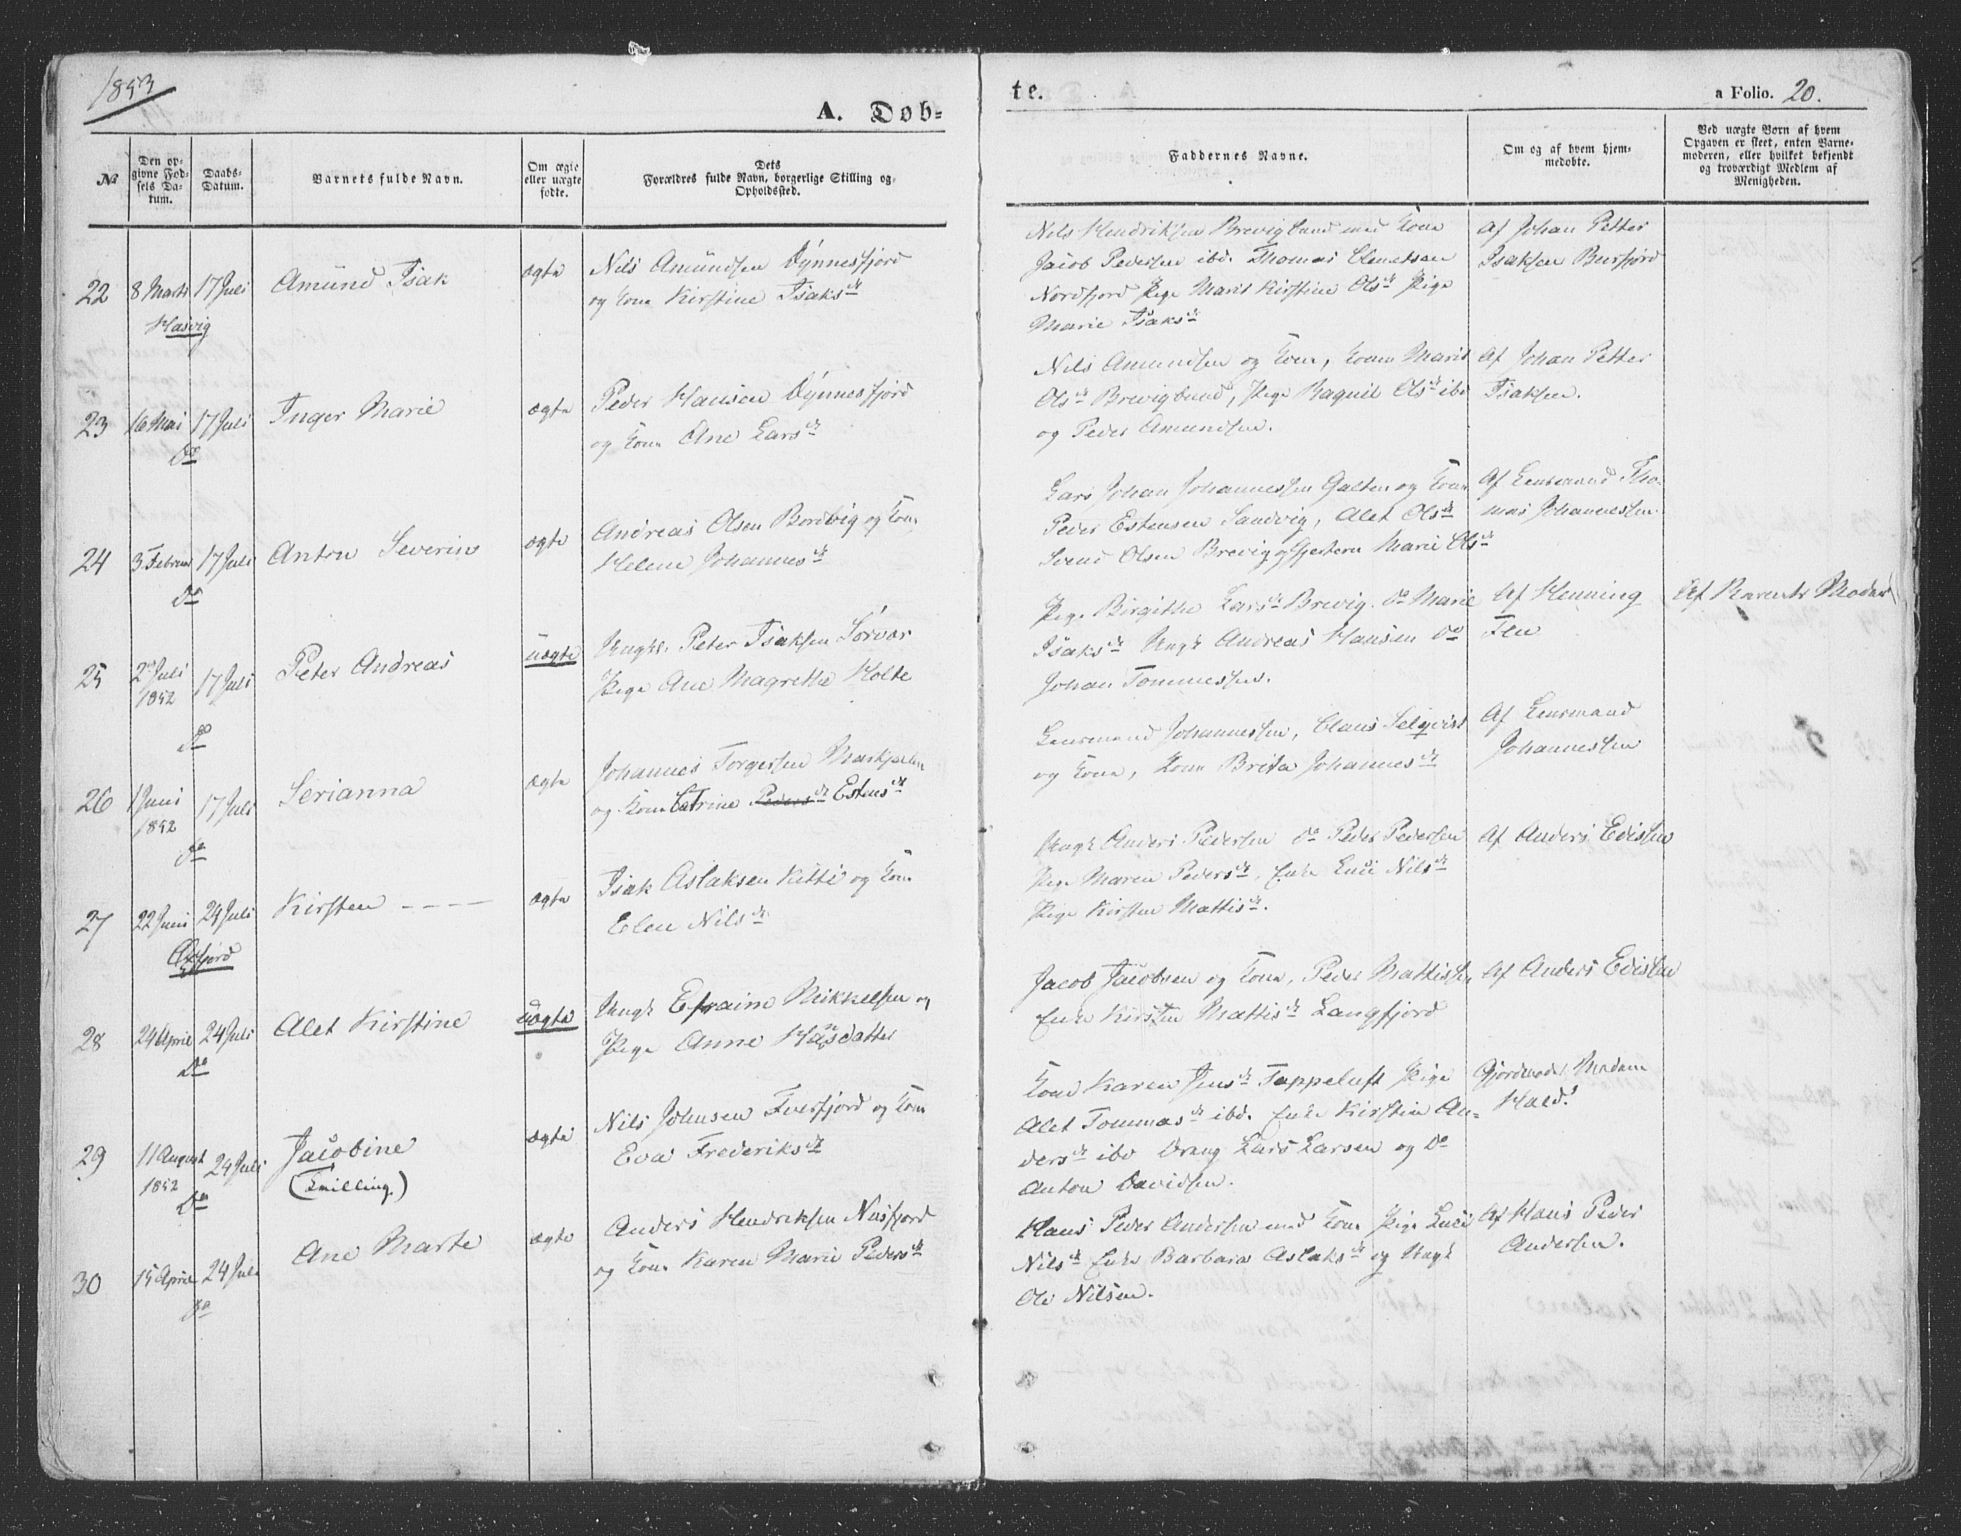 1853
A. Døb-
te.
a Folio. 20.
No
Den op-
givne Fød-
sels Da-
tum.
Daabs-
Datum.
Barnets fulde Navn.
Om ægte
eller uægte
fødte.
Dets
Forældres fulde Navn, borgerlige Stilling og
Opholdssted.
Faddernes Navne.
Om og af hvem hjem-
medøbte.
Ved uægte Børn af hvem
Opgaven er skeet, enten Barne-
moderen, eller hvilket bekjendt
og troværdigt Medlem af
Menigheden.
22 8 Marts 17 Juli Amund Isak ægte
Hasvig
Nils Amundsen Dynnesfjord
og Kone Kirstine Isaksdr
Nils Hendriksen Brevigbund med Kone
Jacob Pedersen ibd. Thomas Clemetsen
Nordfjord Pige Marit Kirstine Olsdr Pige
Marie Isaksdr
Af Johan Petter
Isaksen Burfjord
23 16 Mai 17 Juli Inger Marie ægte
Do
Peder Hansen Dynnesfjord
og Kone Ane Larsdr
Nils Amundsen og Kone, Konen Marit
Olsdr Brevigbund, Pige Raquil Olsdr ibd
og Peder Amundsen.
Af Johan Petter
Isaksen.
24 3 Februar 17 Juli Anton Severin ægte
Do
Andreas Olsen Bordvig og Kone
Helene Johannesdr
Lars Johan Johannessen Galten og Kone
Peder Estensen Sandvig, Alet Olsdr
Svend Olsen Brevig, Gjertern Marie Olsdr
Af Lensmand Tho-
mas Johannessen
25 2den Juli 1852 17 Juli Peter Andreas uægte
Do
Ungk. Peter Isaksen Sørvær
Pige Ane Magrethe Holte
Pige Birgithe Larsdr Brevig. Do Marie
Isaksdr Ungk Andreas Hansen Do
Johan Tommessen.
Af Henning
Flu
Af Barnets Moder
26 1 Juni 1852 17 Juli Serianna ægte
Do
Johannes Torgersen
og Kone Catrine Pedersdr Estensdr
Lensmand Johannessen, Claus Selqvist
og Kone, Kone Brita Johannesdr
Af Lensmand
Johannessen
27 22 Juni 24 Juli Kirsten - - - - ægte
Øxfjord
Isak Aslaksen Kitti og Kone
Elen Nilsdr
Ungk Anders Pedersen Do Peder Pedersen
Pige Maren Pedersdr, Enke Luci Nilsdr
Pige Kirsten Mattisdr.
Af Anders Edissen
28 24 April 24 Juli Alet Kirstine uægte
Do
Ungk Efraim Mikkelsen og
Pige Anne Hansdatter
Jacob Jacobsen og Kone, Peder Mattissen
Enke Kirsten Mattisdr Langfjord
Af Anders Edissen
29 11 August 1852 24 Juli Jacobine ægte
Do
(Tvilling.)
Nils Johnsen Tverfjord og Kone
Eva Frederiksdr
Kone Karen Jensdr Tappeluft Pige
Alet Tommasdr ibd. Enke Kirstin An-
dersdr ibd Dreng Lars Larsen og Do
Anton Davidsen.
Gjordmoder Madam
Hald.
30 15 April 24 Juli Ane Marte ægte
Do
Anders Hendriksen Nusfjord
og Kone Karen Marie Pedersdr
Hans Peder Andersen med Kone Pige Luci
Nilsdr Enke Barbara Aslaksdr og Ungk
Ole Nilsen.
Af Hans Peder
Andersen.